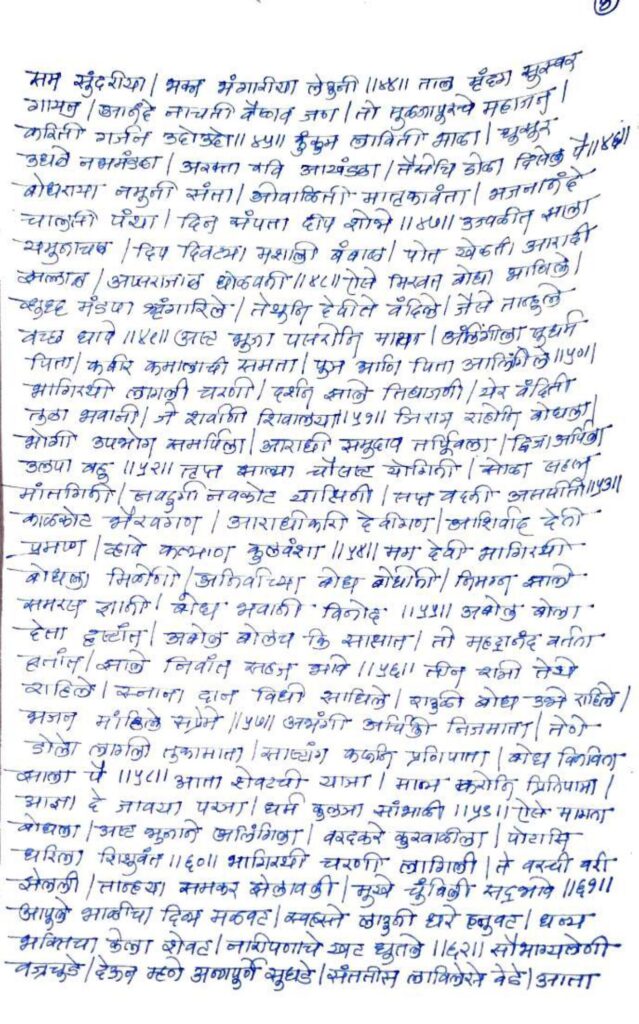 सम सुंदरीया | भक्त भंगारीया लेवुनी ||४४|| ताल मृदंग सुस्वर
गायन | आनंदे नाचती वैष्णव जन | तो मुळगापुरचे महाजन |
करिती गर्जना उदोउदो ||४५|| कुंकुम लाविती भाळा | धुसर
उधळे नभमंडळा | अरक्त रवि आखंडळा | तैसेचि डोळा दिसे पै ||४६||
बोधराया नमुनी संता | ओवाळिती मातृकावंता | भजनानंदे
चालती पंथा | दिन संपता दीप शोभे ||४७|| उज्वळीत झाला
यमुनाचळ | दिप दिवट्या मशाली बंबाळ | पोत खेळती आराधी
सल्लाळ | ||४८|| ऐसे मिरवत बोधा आणिले |
मंडपा श्रृंगारिले | तेथुनि देवीते वंदिले | जैसे तान्हुले
वच्छ धावे ||४९|| अष्ट भुजा पसरोनि माता | अलिंगीला
पिता | कबीर कमालाची समता | पुत्र आणि पिता आलिंगिले ||५०||
भागिरथी लागली चरणी | दर्शन झाले निधाजणी | येर वंदिती
तुळा भवानी | जे शर्वाणी शिवालया ||५१|| राहोनि बोधला |
भोगी उपभोग समर्पिला | आराधी समुदाव तर्पिवला | द्विजा अर्पिला
उलपा बहु ||५२|| तृप्त झाल्या चौसष्ट योगिनी | सोळा सहस्र
मातंगिनी | नवदुर्गा नवकोट याक्षिणी | सप्त ||५३||
काळकोट भैरवगण | आराधीकारी देवीगण | आशिर्वाद देती
प्रमाण | व्हावे कल्याण कुलवंशा ||५४|| मग देवी भागिरथी
बोधला मिळोनी | अनिर्वाच्या बोध बोधोनी | निमग्न झाले
समरस ज्ञानी | बोध भवानी विनोद ||५५|| अबोल बोला
देता दृष्टांत | अबोल बोलच कि साक्षात | तो महदानंद वर्तता
वृत्तांत | झाले निवांत सहज भावे ||५६|| तीन रात्री तेथे
राहिले | स्नान दान विधी साधिले | राउळी बोध उभे राहिले |
भजन मांडिले सप्रेमे ||५७|| अभंगी अर्पिली निजमाता | तेणे
डोला लागली तुकामाता | साष्टांग करुनि प्रणिपाता | बोध विनविता
झाला पै ||५८|| आता शेवटची यात्रा | मान्य करोनि |
आज्ञा दे जावया परत्रा | धर्म कुळजा सांभाळी ||५९|| ऐसे मागता
बोधला | अष्ट भुजाने अलिंगिला | वरदकरे कुरवाळीला | पोटासि
धरिला शिशुवंत ||६०|| भागिरथी चरणी लागिली | ते वरची वरी
झेलली | तान्हया समकर झेलावली | मुखे चुंबिली सद्भावे ||६१||
आपुले भाळीचा दिव्य मळवट | स्वहस्ते लाउनी धरे हनुवट | धन्य
भक्तिचा केला शेवट | नारीपणाचे खट धुतले ||६२|| सौभाग्यलेणी
वज्रचुडे | देऊन म्हणे अन्नपुर्णे सुघडे | संततीस लाविलेस वेडे | आता